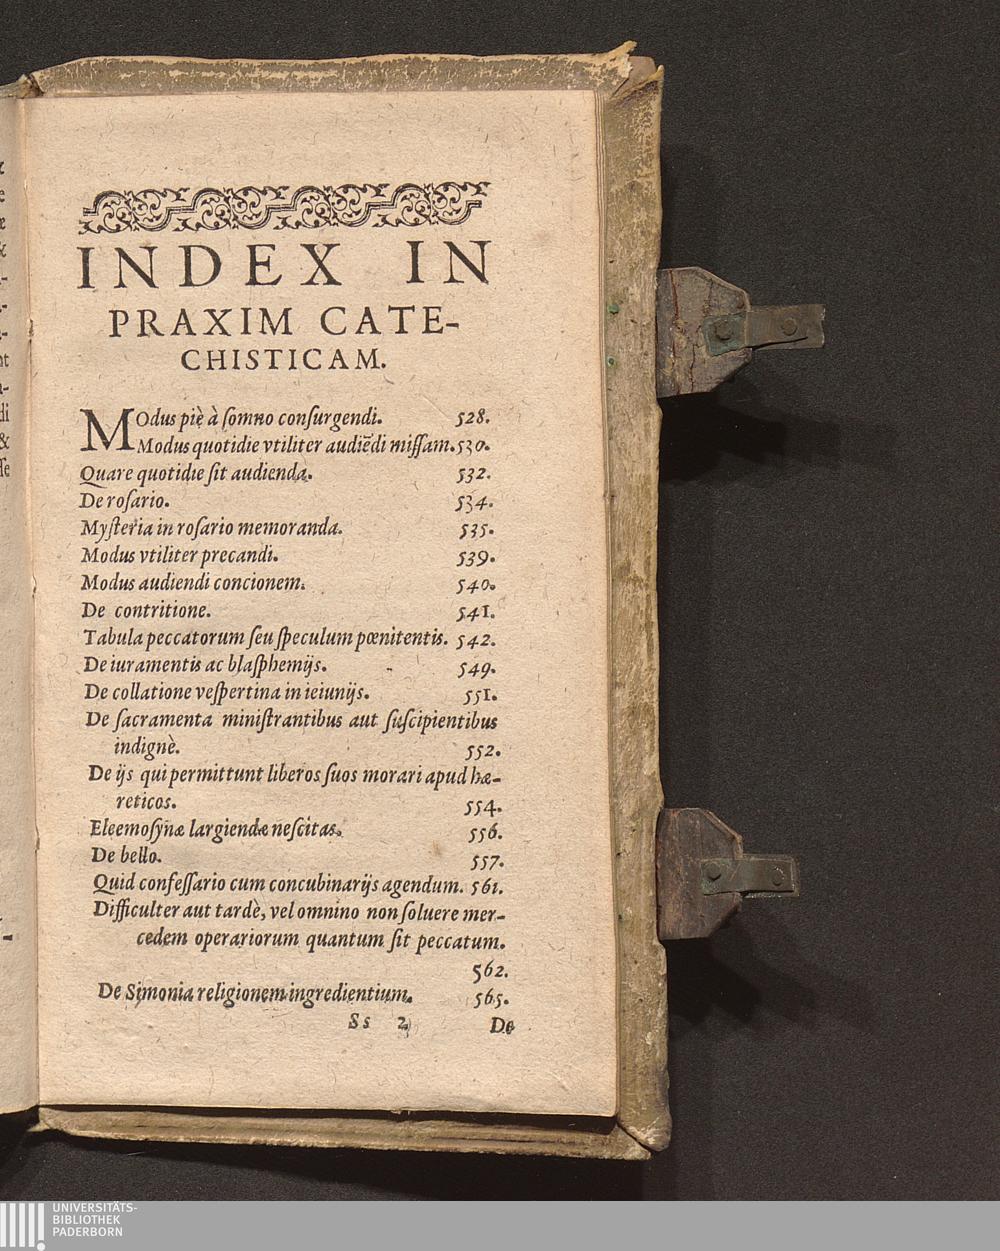 INDEX IN
PRAXIM CATE-
CHISTICAM.
MOdus piè à ſomno conſurgendi. 528.
Modus quotidie vtiliter audiẽdi miſſam. 530.
Quare quotidie ſit audienda. 532.
De roſario. 534.
Myſteria in roſario memoranda. 535.
Modus vtiliter precandi. 539.
Modus audiendi concionem. 540.
De contritione. 541.
Tabula peccatorum ſeu ſpeculum pœnitentis. 542.
De iuramentis ac blaſphemijs. 549.
De collatione veſpertina in ieiunijs. 551.
De ſacramenta miniſtrantibus aut ſuſcipientibus
indignè. 552.
De ijs qui permittunt liberos ſuos morari apud hæ-
reticos. 554.
Eleemoſynæ largiendæ neſcitas. 556.
De bello. 557.
Quid confeſſario cum concubinarijs agendum. 561.
Difficulter aut tardè, vel omnino non ſoluere mer-
cedem operariorum quantum ſit peccatum.
562.
De Simonia religionem ingredientium. 565.
Ss 2 De
UNIVERSITÄTS-
BIBLIOTHEK
PADERBORN